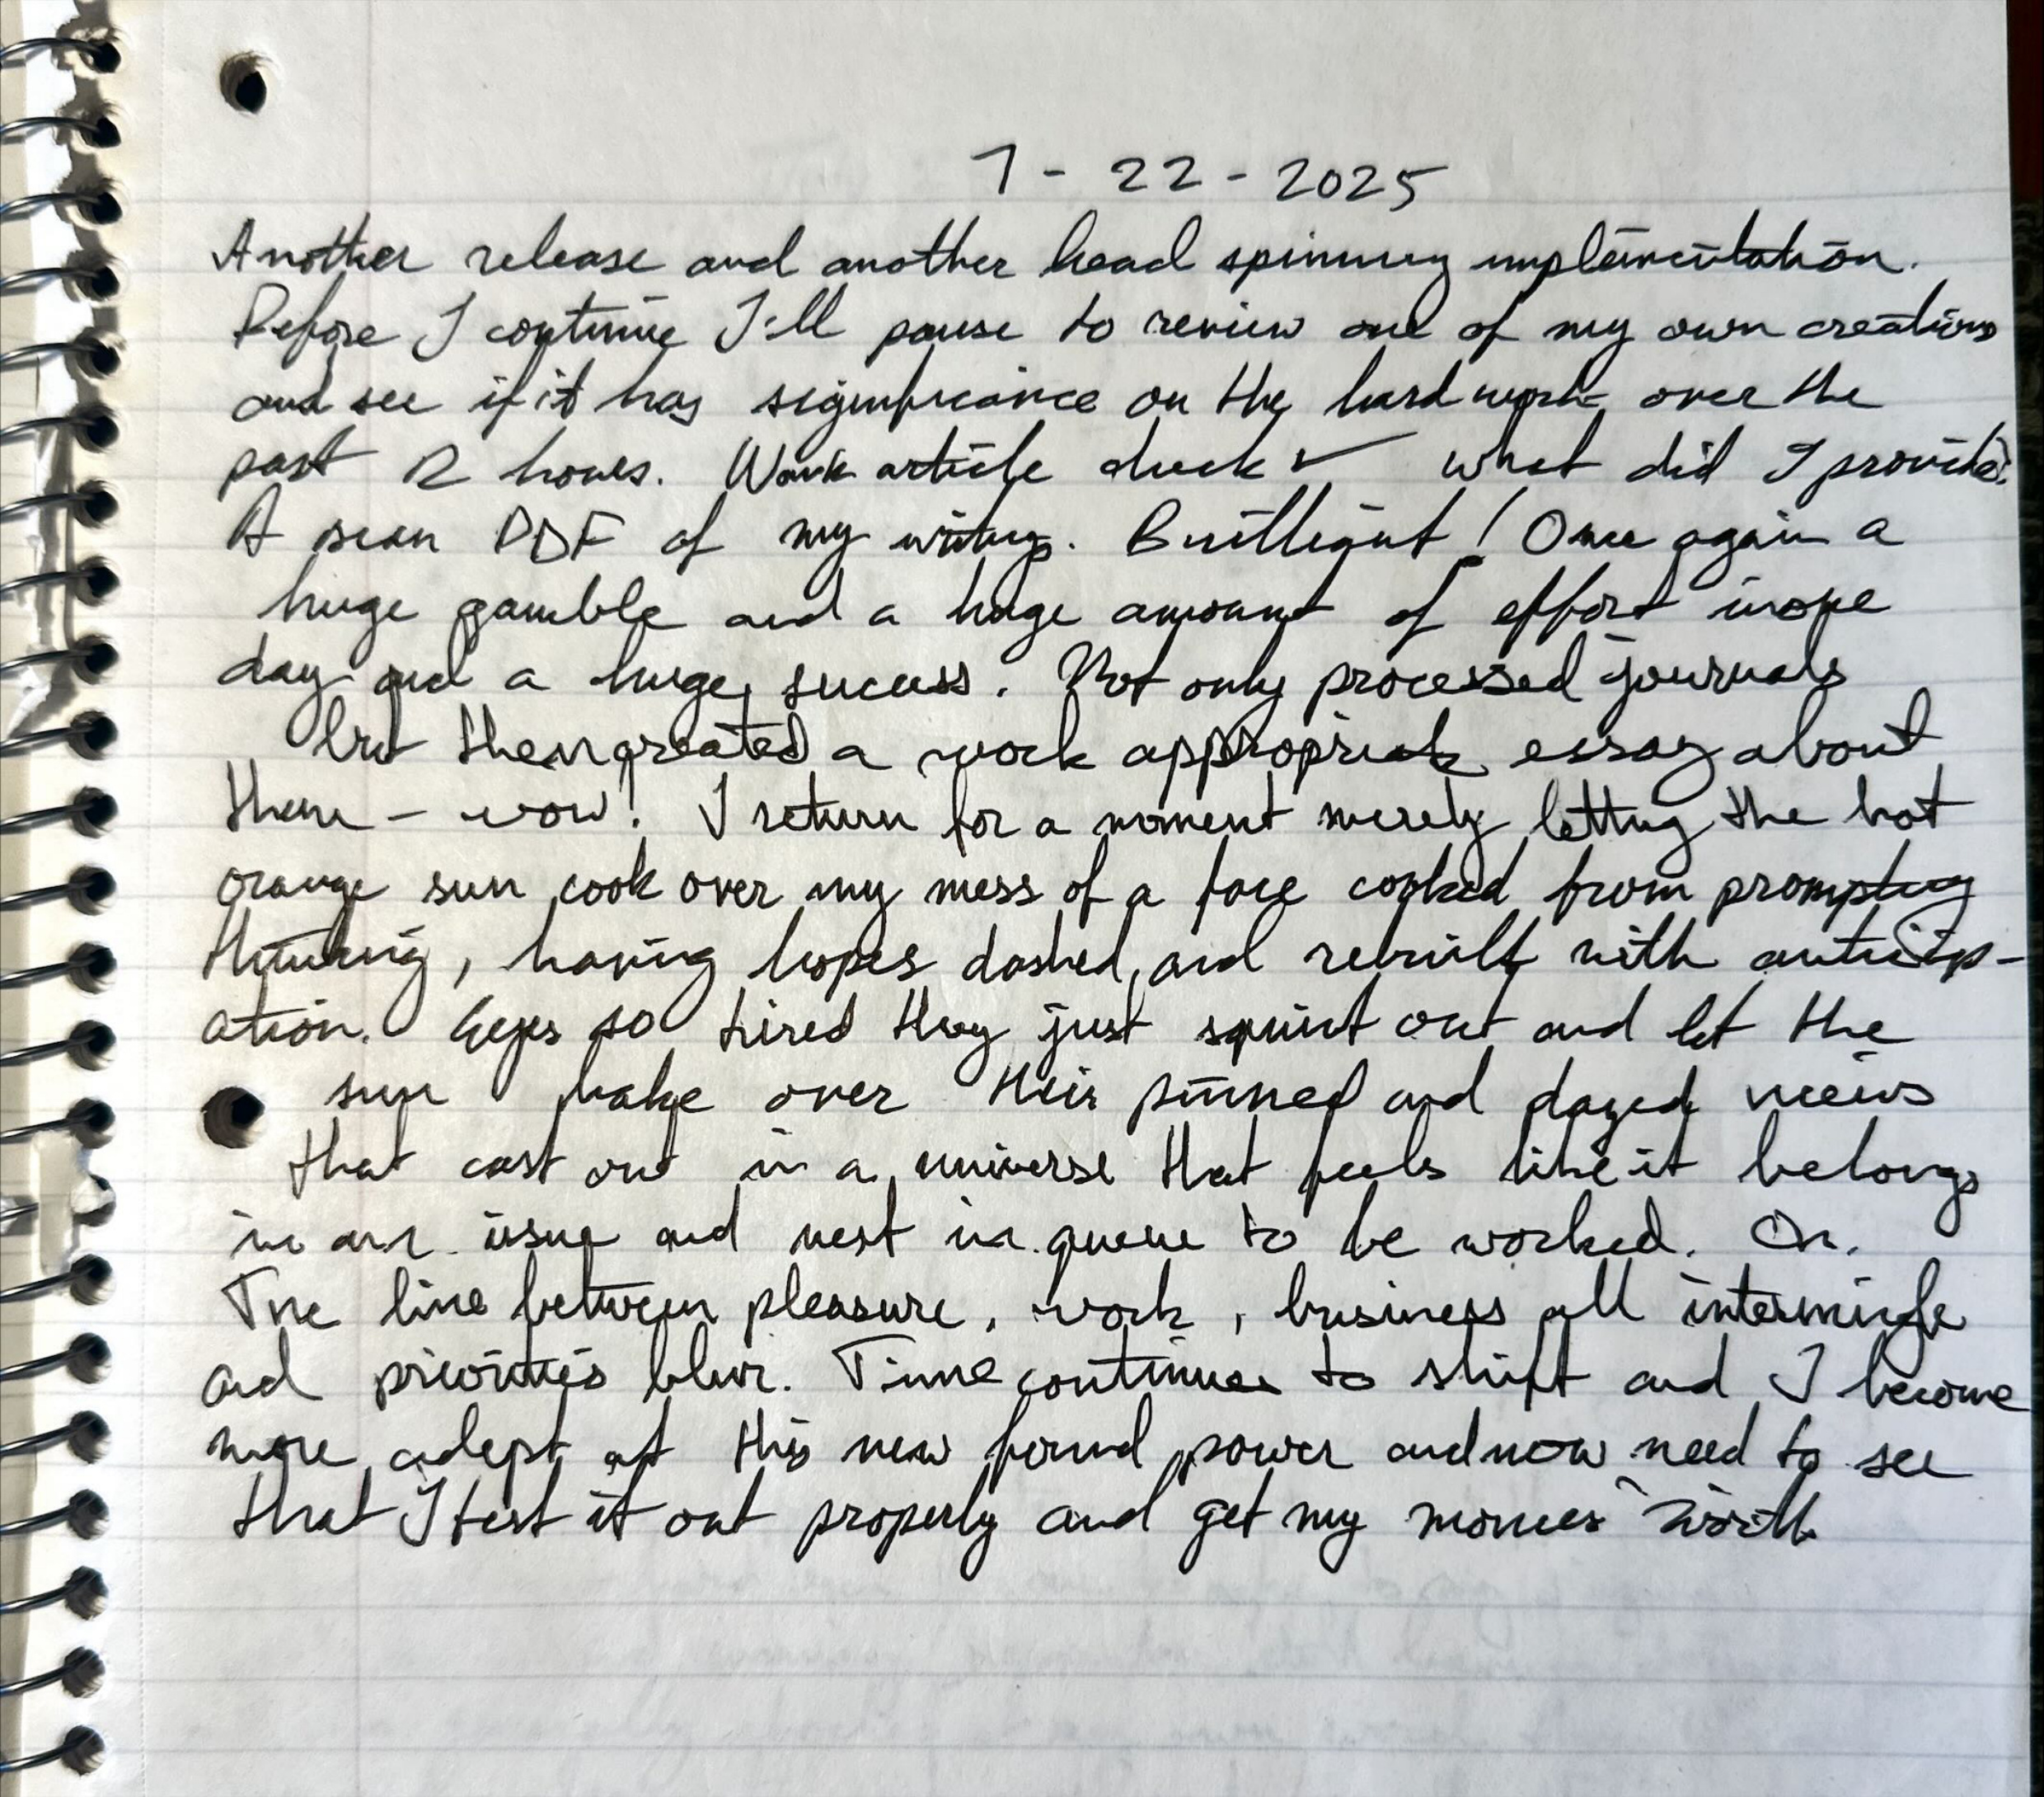 7-22-2025
Another release and another head spinning implementation.
Before I continue I'll pause to review one of my own creations
and see if it has significance on the hard work over the
past 12 hours. Work article check ✓ what did I provide?
A scan PDF of my writings. Brilliant! Once again a
huge gamble and a huge amount of effort in one
day and a huge success. Not only processed journals
but then created a work appropriate essay about
them - wow! I return for a moment merely letting the hot
orange sun cook over my mess of a face cooked from prompting
thinking, having hopes dashed, and rebuilt with anticip-
ation. Eyes so tired they just squint out and let the
sun bake over their pinned and dazed views
that cast out in a universe that feels like it belongs
in an issue and next in queue to be worked. On.
The line between pleasure, work, business all intermingle
and priorities blur. Time continues to shift and I become
more adept at this new found power and now need to see
that I test it out properly and get my monies worth